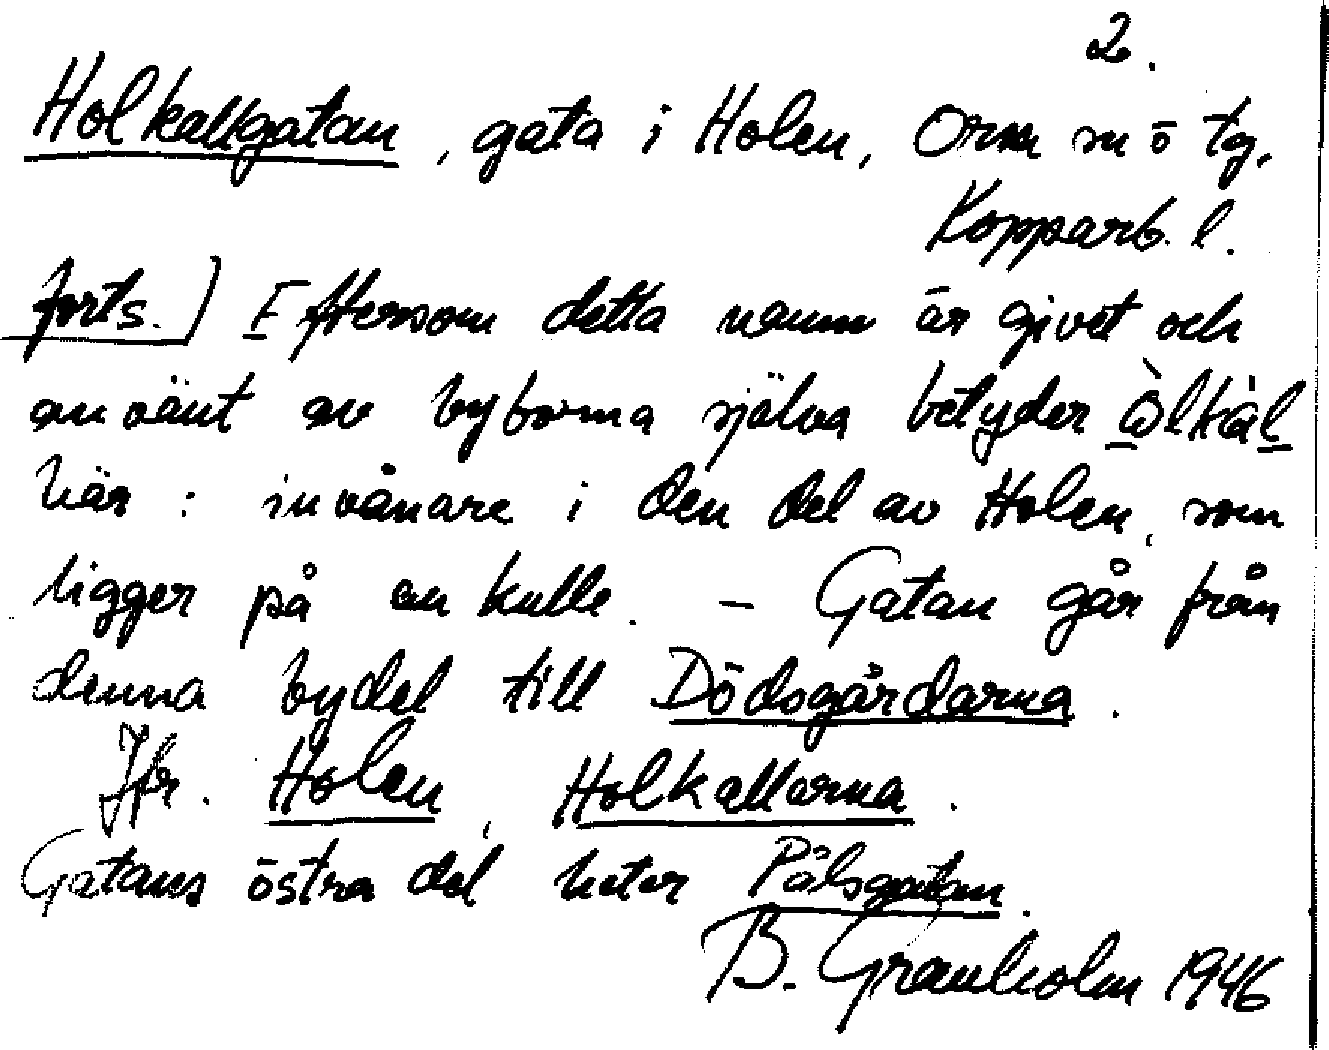 2.
Holkallgatan, gata i Holen, Orsa sn ö tg,
Kopparb. l.
forts.) Eftersom detta namn är givet och
använt av byborna själva betyder
här: invånare i den del av Holen, som
ligger på en kulle. — Gatan går från
denna bydel till Dödsgårdarna.
Jfr. Holen, Holkallarna.
Gatans östra del heter Pålsgatan.
B. Granholm 1946